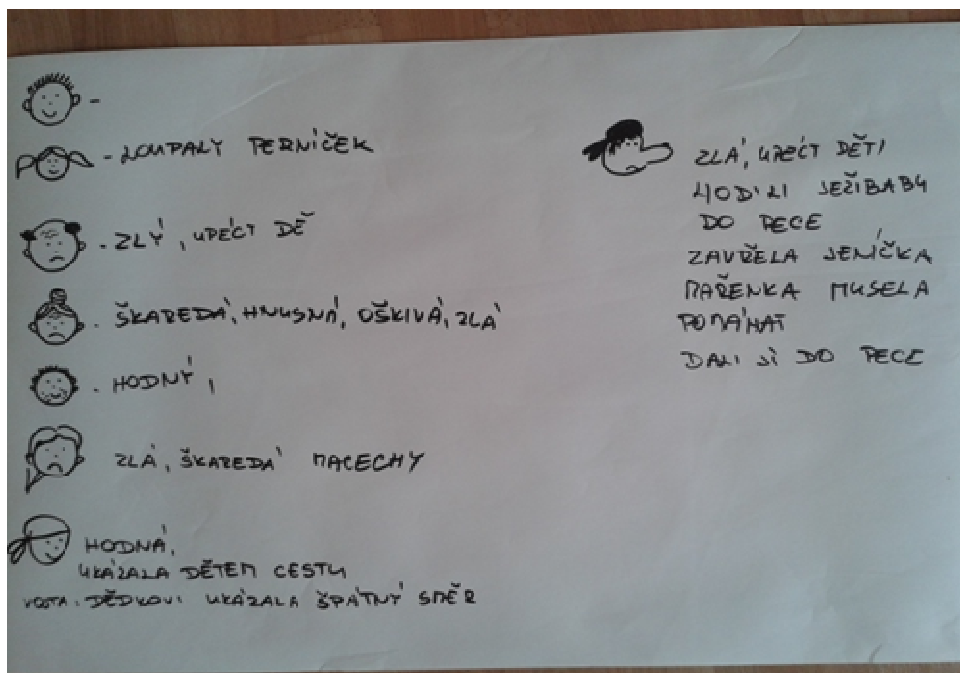 -
- LOUPALY PERNÍČEK
- ZLÝ, UPÉCT DĚ
- ŠKAREDÁ, HNUSNÁ, OŠKIVÁ, ZLÁ
- HODNÝ,
ZLÁ, ŠKAREDÁ MACECHY
HODNÁ,
UKÁZALA DĚTEM CESTU
DĚDKOVI UKÁZALA ŠPÁTNÝ SMĚR
ZLÁ, UPÉCT DĚTI
HODILI JEŽIBABU
DO PECE
ZAVŘELA JENÍČKA
MAŘENKA MUSELA
POMÁHAT
DALI JI DO PECE